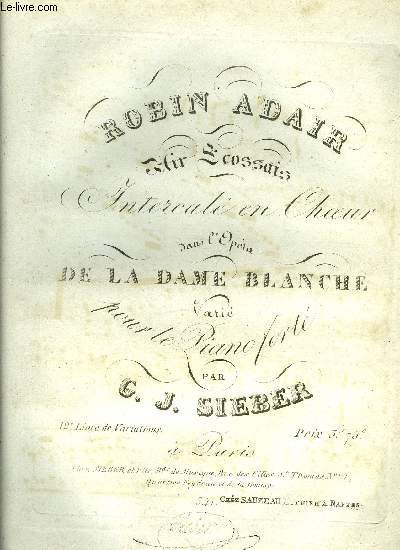 Le-livre.com
ROBIN ADAIR
Air Ecossais
Intercalé en Chœur
dans l'Opéra
DE LA DAME BLANCHE
Varié
pour le Piano forté
PAR
G. J. SIEBER
12e Livre de Variations. Prix 3f 75c
à Paris
Chez SIEBER et Fils Mds de Musique, Rue des Filles St Thomas No
Chez SAUZEAU A NANTES